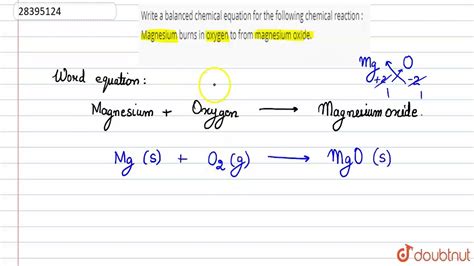 28395124
Write a balanced chemical equation for the following chemical reaction :
Magnesium burns in oxygen to from magnesium oxide.
Mg O
+2 -2
1 1
Word equation:
Magnesium + Oxygen → Magnesium oxide.
Mg (s) + O2 (g) → MgO (s)
doubtnut